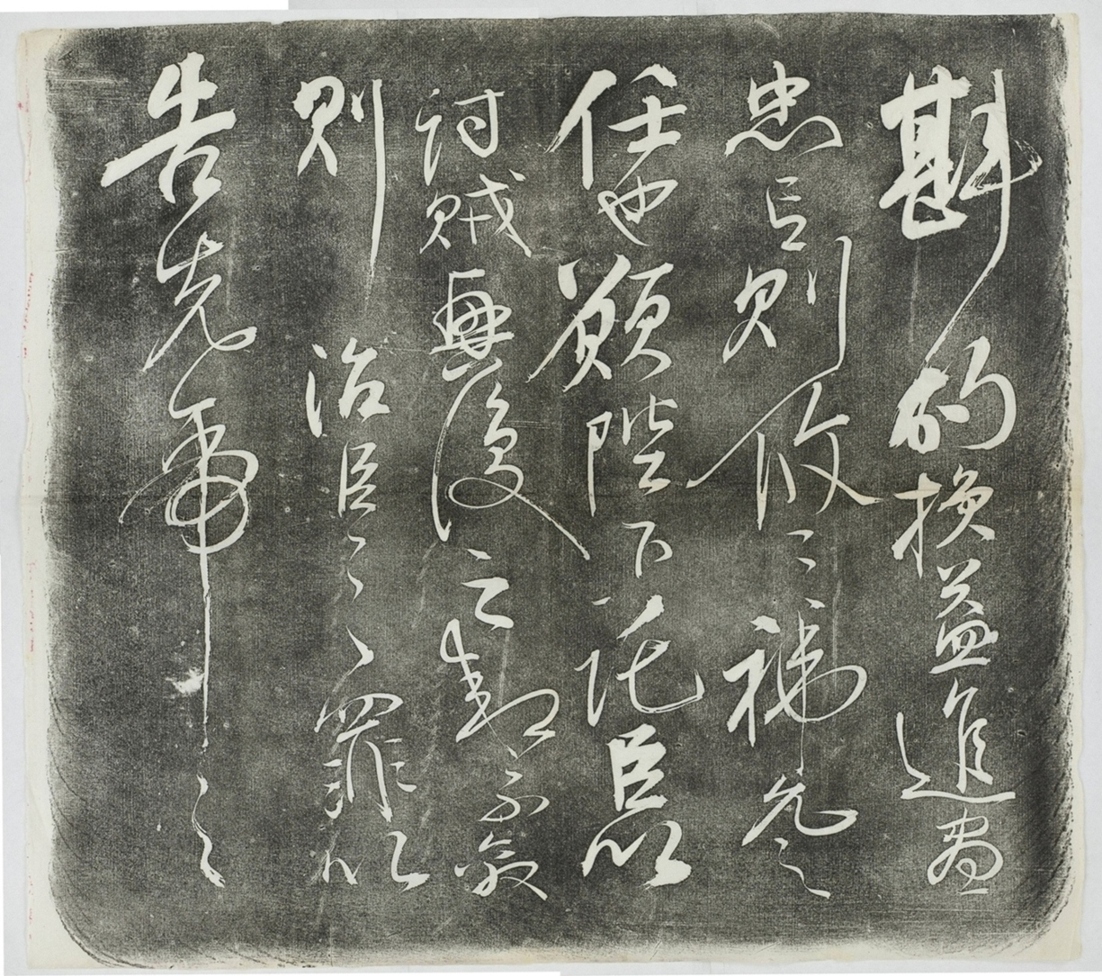 斟酌損益進盡
忠言則攸之禕允之
任也願陛下託臣以
討賊興復之效不效
則治臣之罪以
告先帝之